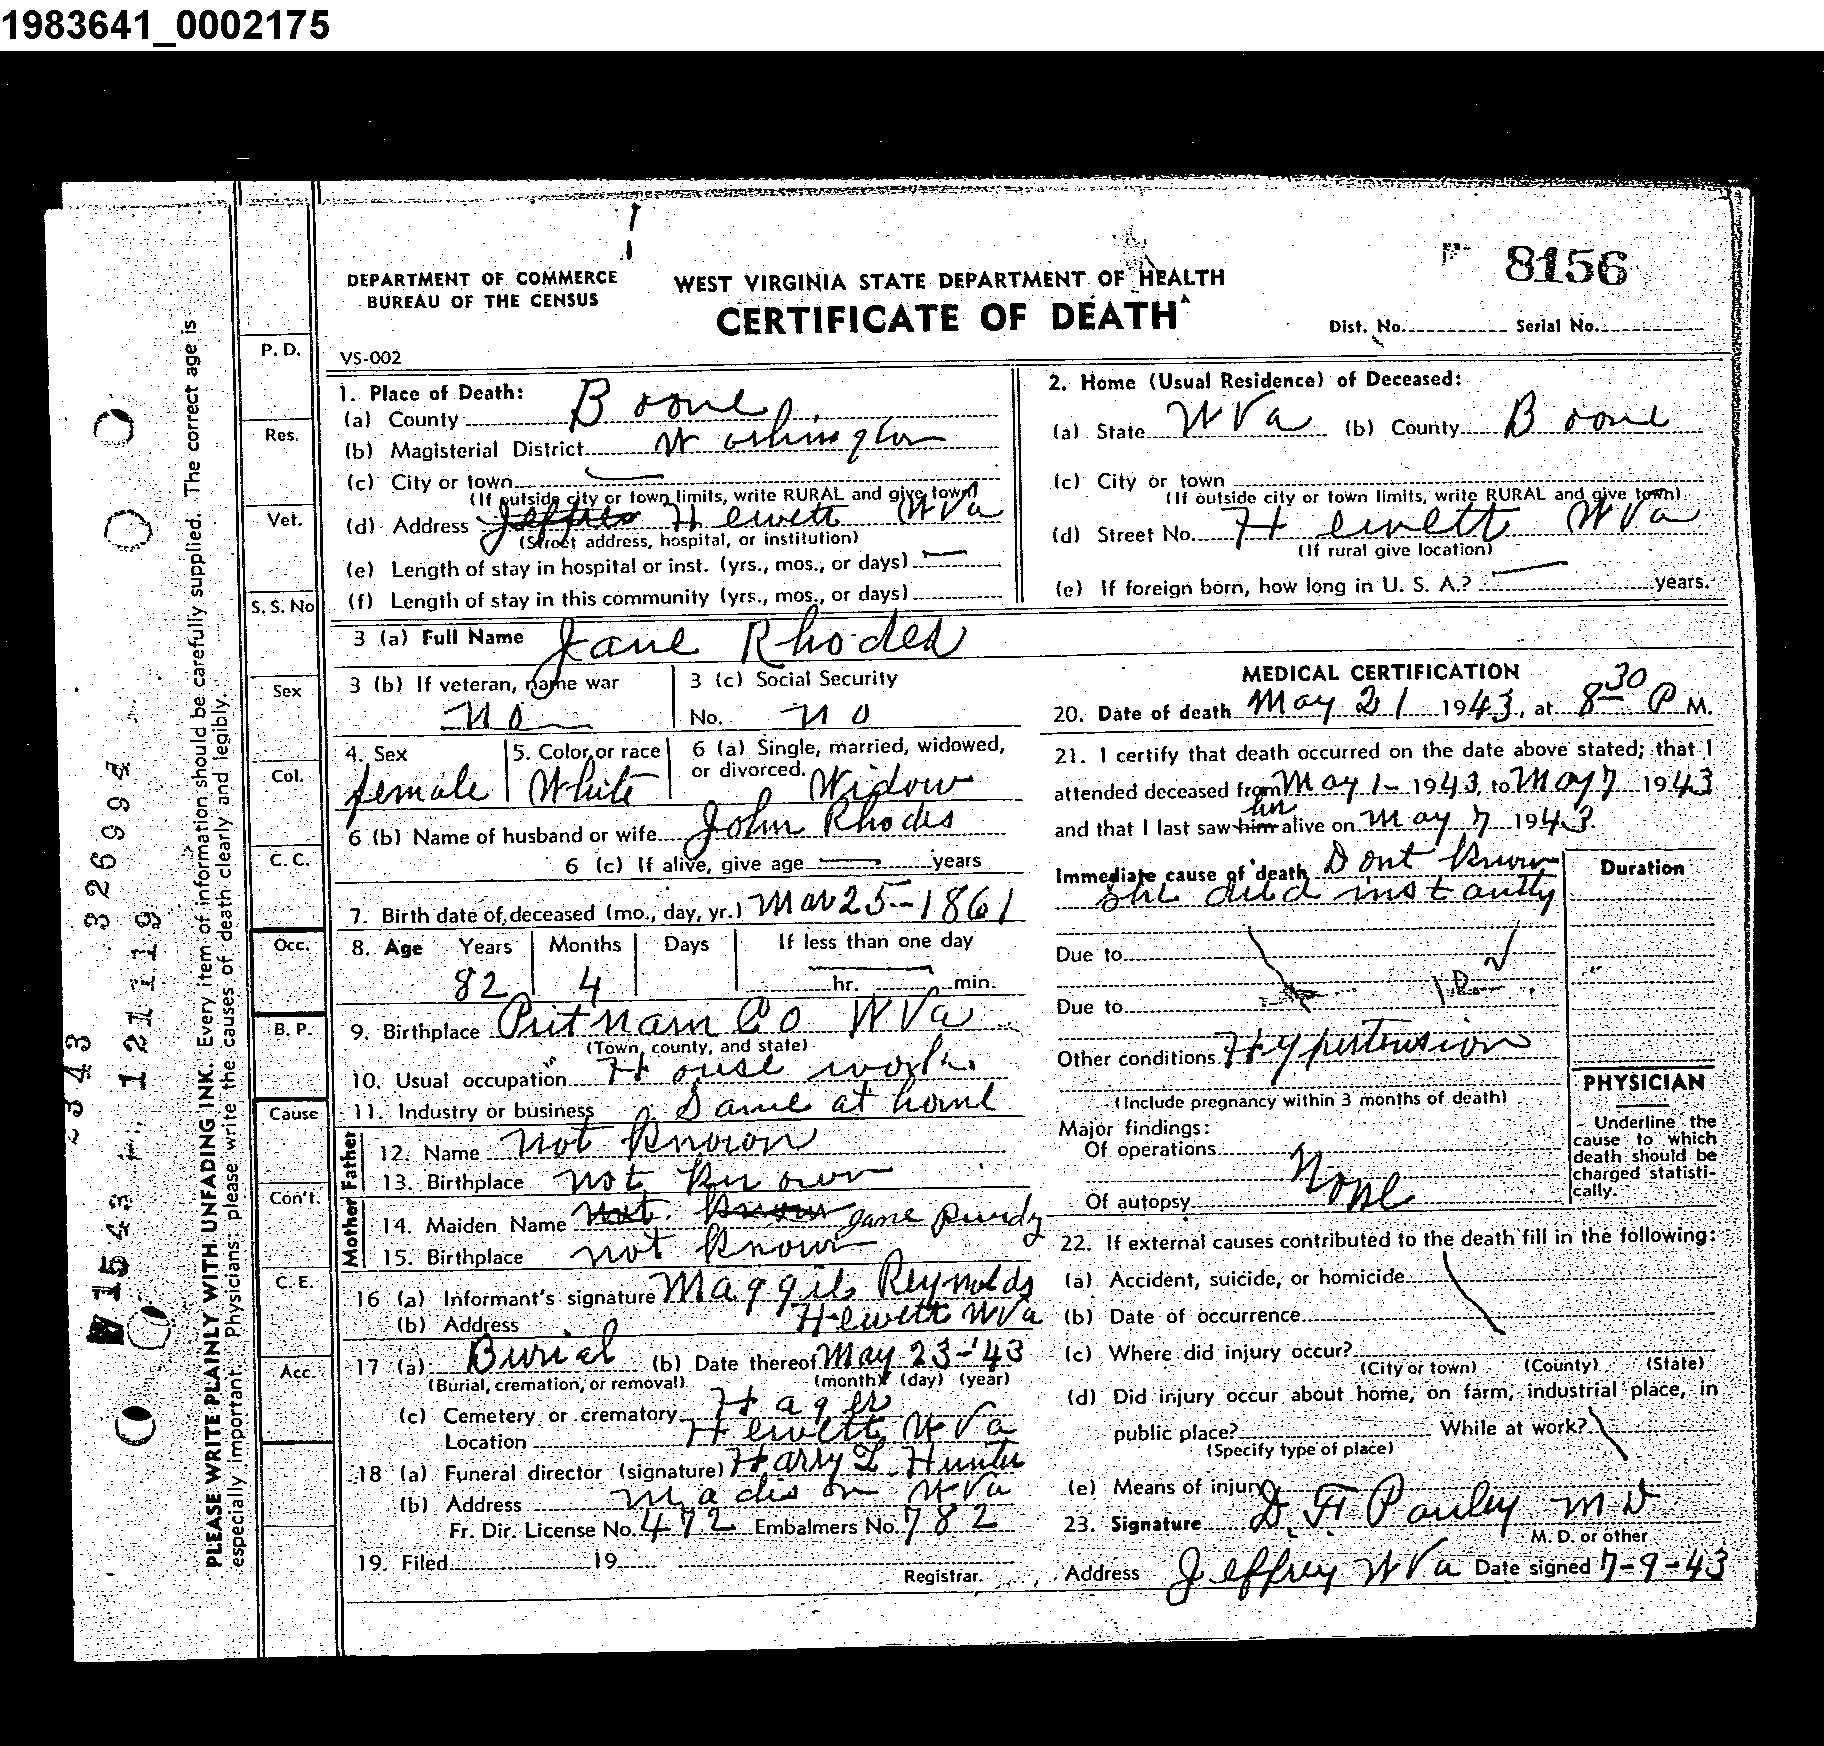 1983641_0002175
DEPARTMENT OF COMMERCE
BUREAU OF THE CENSUS
WEST VIRGINIA STATE DEPARTMENT OF HEALTH
CERTIFICATE OF DEATH
8156
Dist. No. Serial No.
VS-002
1. Place of Death:
(a) County Boone
(b) Magisterial District Washington
(c) City or town —
(If outside city or town limits, write RURAL and give town)
(d) Address Jeffres Hewett W Va
(Street address, hospital, or institution)
(e) Length of stay in hospital or inst. (yrs., mos., or days) —
(f) Length of stay in this community (yrs., mos., or days)
2. Home (Usual Residence) of Deceased:
(a) State W Va (b) County Boone
(c) City or town
(If outside city or town limits, write RURAL and give town)
(d) Street No. Hewett W Va
(If rural give location)
(e) If foreign born, how long in U. S. A.? — years.
3 (a) Full Name Jane Rhodes
3 (b) If veteran, name war
no
3 (c) Social Security
No. no
4. Sex
female
5. Color or race
White
6 (a) Single, married, widowed,
or divorced. Widow
6 (b) Name of husband or wife John Rhodes
6 (c) If alive, give age — years
7. Birth date of deceased (mo., day, yr.) Mar 25-1861
8. Age Years Months Days If less than one day
82 4 hr. min.
9. Birthplace Putnam Co W Va
(Town, county, and state)
10. Usual occupation House work
11. Industry or business Same at home
Father
12. Name not known
13. Birthplace not known
Mother
14. Maiden Name not known Jane Purdy
15. Birthplace not known
16 (a) Informant's signature Maggie Reynolds
(b) Address Hewett W Va
17 (a) Burial (b) Date thereof May 23-'43
(Burial, cremation, or removal) (month) (day) (year)
(c) Cemetery or crematory Hager
Location Hewett W Va
18 (a) Funeral director (signature) Harry L. Hunter
(b) Address Madison W Va
Fr. Dir. License No. 472 Embalmers No. 782
19. Filed 19
Registrar.
MEDICAL CERTIFICATION
20. Date of death May 21 1943, at 8 30 P M.
21. I certify that death occurred on the date above stated; that I
attended deceased from May 1- 1943, to May 7 1943
and that I last saw him alive on May 7 1943.
Immediate cause of death Dont know
she died instantly
Duration
Due to
Due to
Other conditions Hypertension
(Include pregnancy within 3 months of death)
Major findings:
Of operations
None
Of autopsy
PHYSICIAN
Underline the
cause to which
death should be
charged statisti-
cally.
22. If external causes contributed to the death fill in the following:
(a) Accident, suicide, or homicide
(b) Date of occurrence
(c) Where did injury occur?
(City or town) (County) (State)
(d) Did injury occur about home, on farm, industrial place, in
public place? While at work?
(Specify type of place)
(e) Means of injury
23. Signature D. H Pauley M D
M. D. or other
Address Jeffrey W Va Date signed 7-9-43
P. D.
Res.
Vet.
S. S. No
Sex
Col.
C. C.
Occ.
B. P.
Cause
Con't.
C. E.
Acc.
PLEASE WRITE PLAINLY WITH UNFADING INK. Every item of information should be carefully supplied. The correct age is
especially important. Physicians: please write the causes of death clearly and legibly.
326994
121119